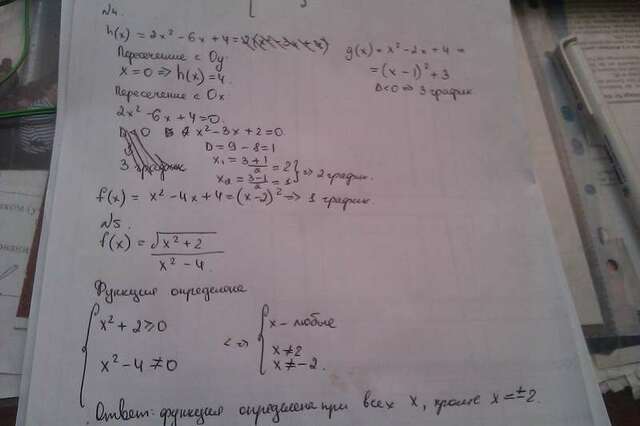 №4.
h(x) = 2x² - 6x + 4 =
Пересечение с Oy.
x = 0 => h(x) = 4.
Пересечение с Ox
2x² - 6x + 4 = 0.
x² - 3x + 2 = 0
D = 9 - 8 = 1
x₁ = (3+1)/2 = 2
x₂ = (3-1)/2 = 1 } => 2 график.
g(x) = x² - 2x + 4 =
= (x - 1)² + 3
D < 0 => 3 график
f(x) = x² - 4x + 4 = (x-2)² => 1 график.
№5.
f(x) = √(x² + 2) / (x² - 4)
Функция определена
{ x² + 2 ≥ 0
x² - 4 ≠ 0
<=> { x - любые
x ≠ 2
x ≠ -2.
Ответ: функция определена при всех x, кроме x = ±2.